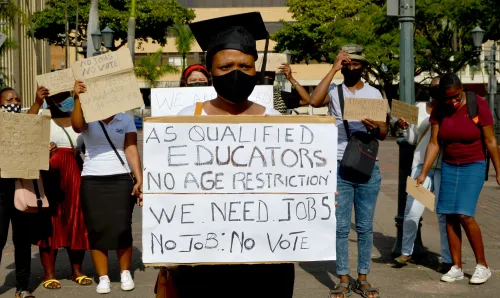 NO JOBS
NO VOTE
WE
AS QUALIFIED
EDUCATORS
'NO AGE RESTRICTION'
WE. NEED. JOBS
NO JOB: NO VOTE